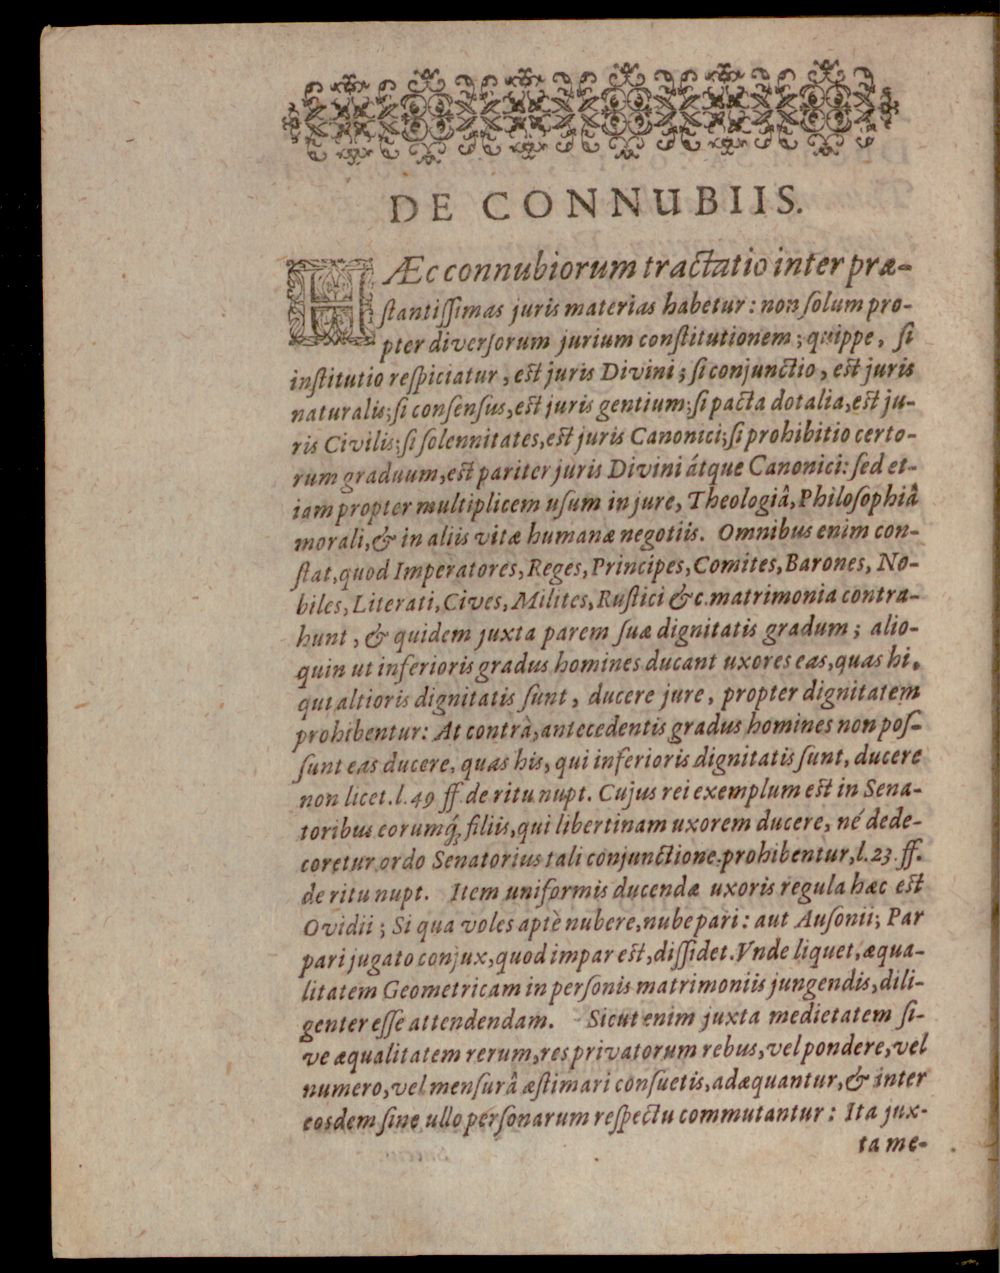 DE CONNUBIIS.
HÆc connubiorum tractatio inter præ-
ſtantiſſimas juris materias habetur: non ſolum pro-
pter diverſorum jurium conſtitutionem; quippe, ſi
inſtitutio reſpiciatur, est juris Divini; ſi conjunctio, est juris
naturalis; ſi conſenſus, est juris gentium; ſi pacta dotalia, est ju-
ris Civilis; ſi ſolennitates, est juris Canonici; ſi prohibitio certo-
rum graduum, est pariter juris Divini átque Canonici: ſed et-
iam propter multiplicem uſum in jure, Theologiâ, Philoſophiâ
morali, & in aliis vitæ humanæ negotiis. Omnibus enim con-
ſtat, quod Imperatores, Reges, Principes, Comites, Barones, No-
biles, Literati, Cives, Milites, Ruſtici &c. matrimonia contra-
hunt, & quidem juxta parem ſuæ dignitatis gradum; alio-
quin ut inferioris gradus homines ducant uxores eas, quas hi,
qui altioris dignitatis ſunt, ducere jure, propter dignitatem
prohibentur: At contrà, antecedentis gradus homines non poſ-
ſunt eas ducere, quas his, qui inferioris dignitatis ſunt, ducere
non licet. l. 49 ff. de ritu nupt. Cujus rei exemplum est in Sena-
toribus eorumq́; filiis, qui libertinam uxorem ducere, né dede-
coretur ordo Senatorius tali conjunctione prohibentur, l. 23 ff.
de ritu nupt. Item uniformis ducendæ uxoris regula hæc est
Ovidii; Si qua voles aptè nubere, nube pari: aut Auſonii; Par
pari jugato conjux, quod impar est, diſſidet. Vnde liquet, æqua-
litatem Geometricam in perſonis matrimoniis jungendis, dili-
genter eſſe attendendam. Sicut enim juxta medietatem ſi-
ve æqualitatem rerum, res privatorum rebus, vel pondere, vel
numero, vel menſurâ æſtimari conſuetis, adæquantur, & inter
eosdem ſine ullo perſonarum reſpectu commutantur: Ita jux-
ta me-